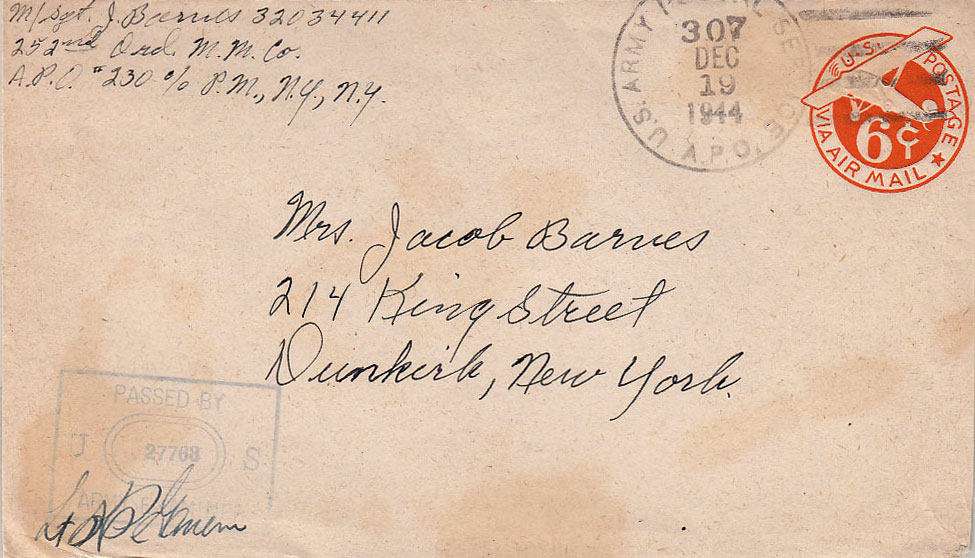 M/Sgt. J. Barnes 32034411
252nd Ord. M.M. Co.
A.P.O. #230 c/o P.M., N.Y., N.Y.
U.S. ARMY POSTAL SERVICE
307
DEC
19
1944
A.P.O.
U.S. POSTAGE
6¢
VIA AIR MAIL
Mrs. Jacob Barnes
214 King Street
Dunkirk, New York.
PASSED BY
U 27768 S
ARMY EXAMINER
Lt